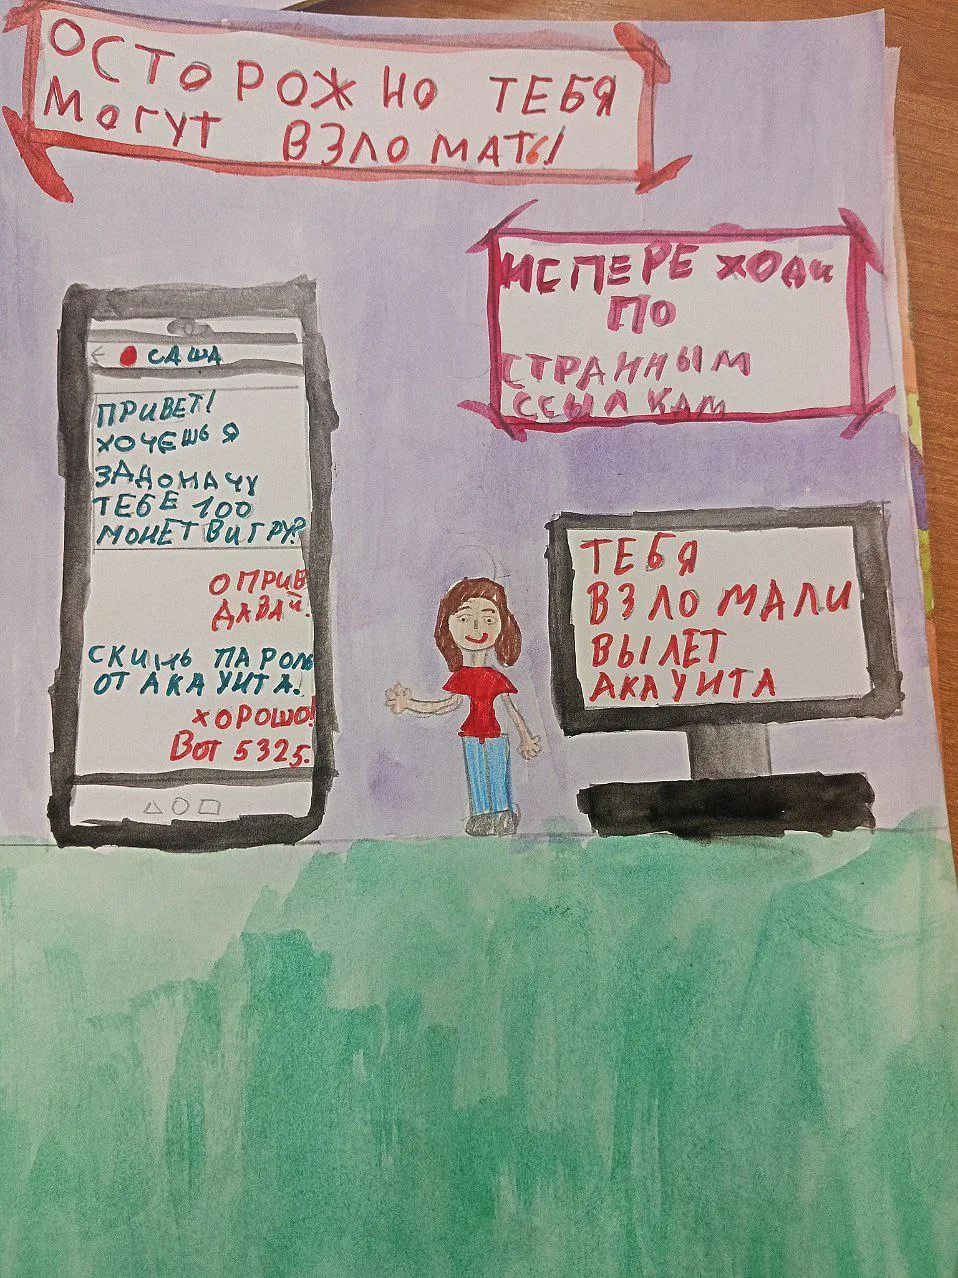 ОСТОРОЖНО ТЕБЯ
МОГУТ ВЗЛОМАТЬ!
ИСПЕРЕХОДИ
ПО
СТРАННЫМ
ССЫЛКАМ
САША
ПРИВЕТ!
ХОЧЕШЬ Я
ЗАДОНАЧУ
ТЕБЕ 100
МОНЕТ В ИГРУ?
О ПРИВ
ДАВАЙ.
СКИНЬ ПАРОЛЬ
ОТ АКАУНТА.
ХОРОШО!
ВОТ 5325.
ТЕБЯ
ВЗЛОМАЛИ
ВЫЛЕТ
АКАУНТА